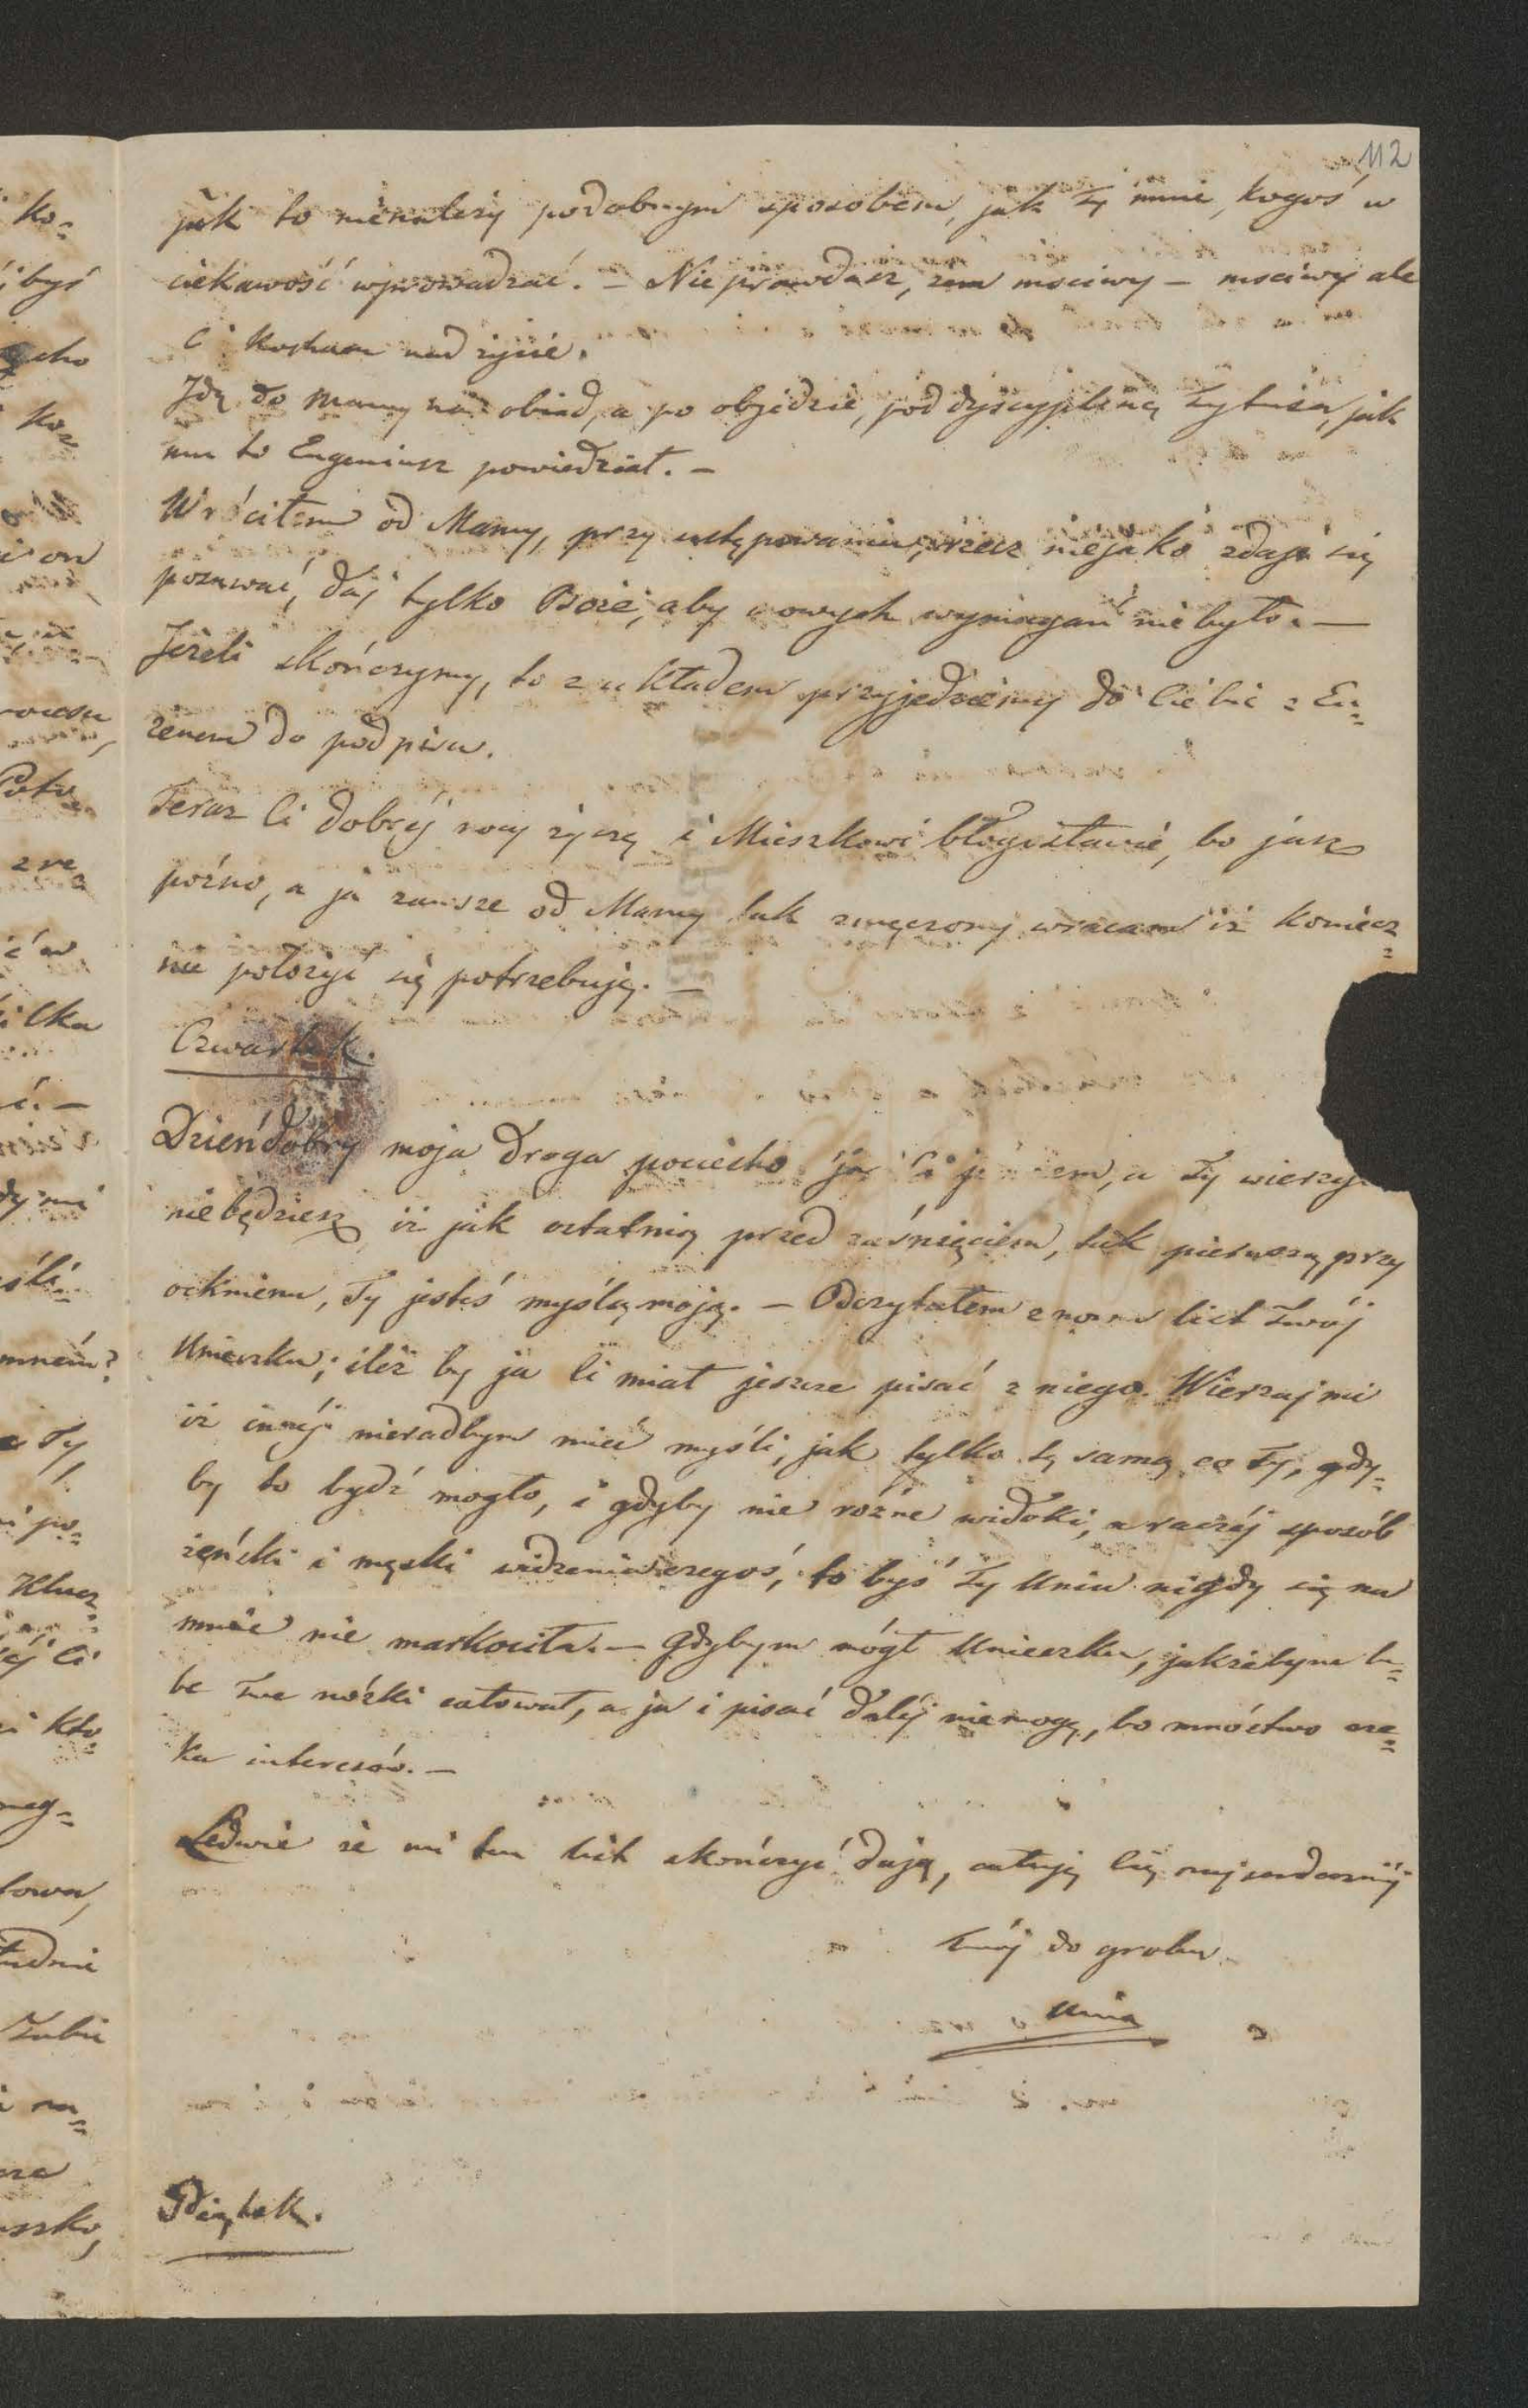 112
jak to nienależy podobnym sposobem, jak Ty mnie, kogoś w
ciekawość wprowadzać. – Nieprawdasz, żem msciwy – msciwy ale
C kocham nad życie.
Idę do Mamy na obiad, a po objedzie, pod dyscyplinę Tytusa, jak
mu to Eugeniusz powiedział. –
Wróciłem od Mamy, przy ustępowaniu, rzecz niejako zdaje się
posuwać, daj tylko Boże, aby nowych wymagań nie było. –
Jeżeli skończymy, to z układem przyjedziemy do Ciebie z Eu=
żenem do podpisu.
Teraz Ci dobrej nocy życzę i Mieszkowi błogosławię, bo już
późno, a ja zawsze od Mamy tak zmęczony wracam iż koniecz=
nie położyć się potrzebuję. –
Czwartek.
Dzieńdobry moja droga pociecho ja Ci , a Ty wierzyć
niebędziesz iż jak ostatnią przed zaśnięciem, tak pierwszą przy
ocknieniu, Ty jesteś myślą moją. – Odczytałem znowu list Twój
Unieczku; ileż by ja Ci miał jeszcze pisać z niego. Wierzaj mi
iż innej nieradbym mieć myśli, jak tylko tę samą co Ty, gdy=
by to bydź mogło, i gdyby nie rózne widoki, a raczej sposób
żeński i męski widzenia czegoś, to byś Ty Uniu nigdy się na
mnie nie markociła. – Gdybym mógł Unieczku, jakżebym lu=
be Twe nóżki całował, a ja i pisać dalej niemogę, bo mnóstwo cze=
ka interesów. –
Ledwie że mi ten list skończyć dają, całuję Cię najserdeczniej
Twój do grobu
Unia
Piątek.
ko=
byś
cho
ko=
on
zre=
ilka
mnein?
Ty
po=
Klucz=
ej Ci
kto=
towa,
Tobie